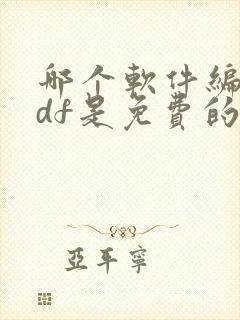 那个軟件編
df是免費的
亞平寧